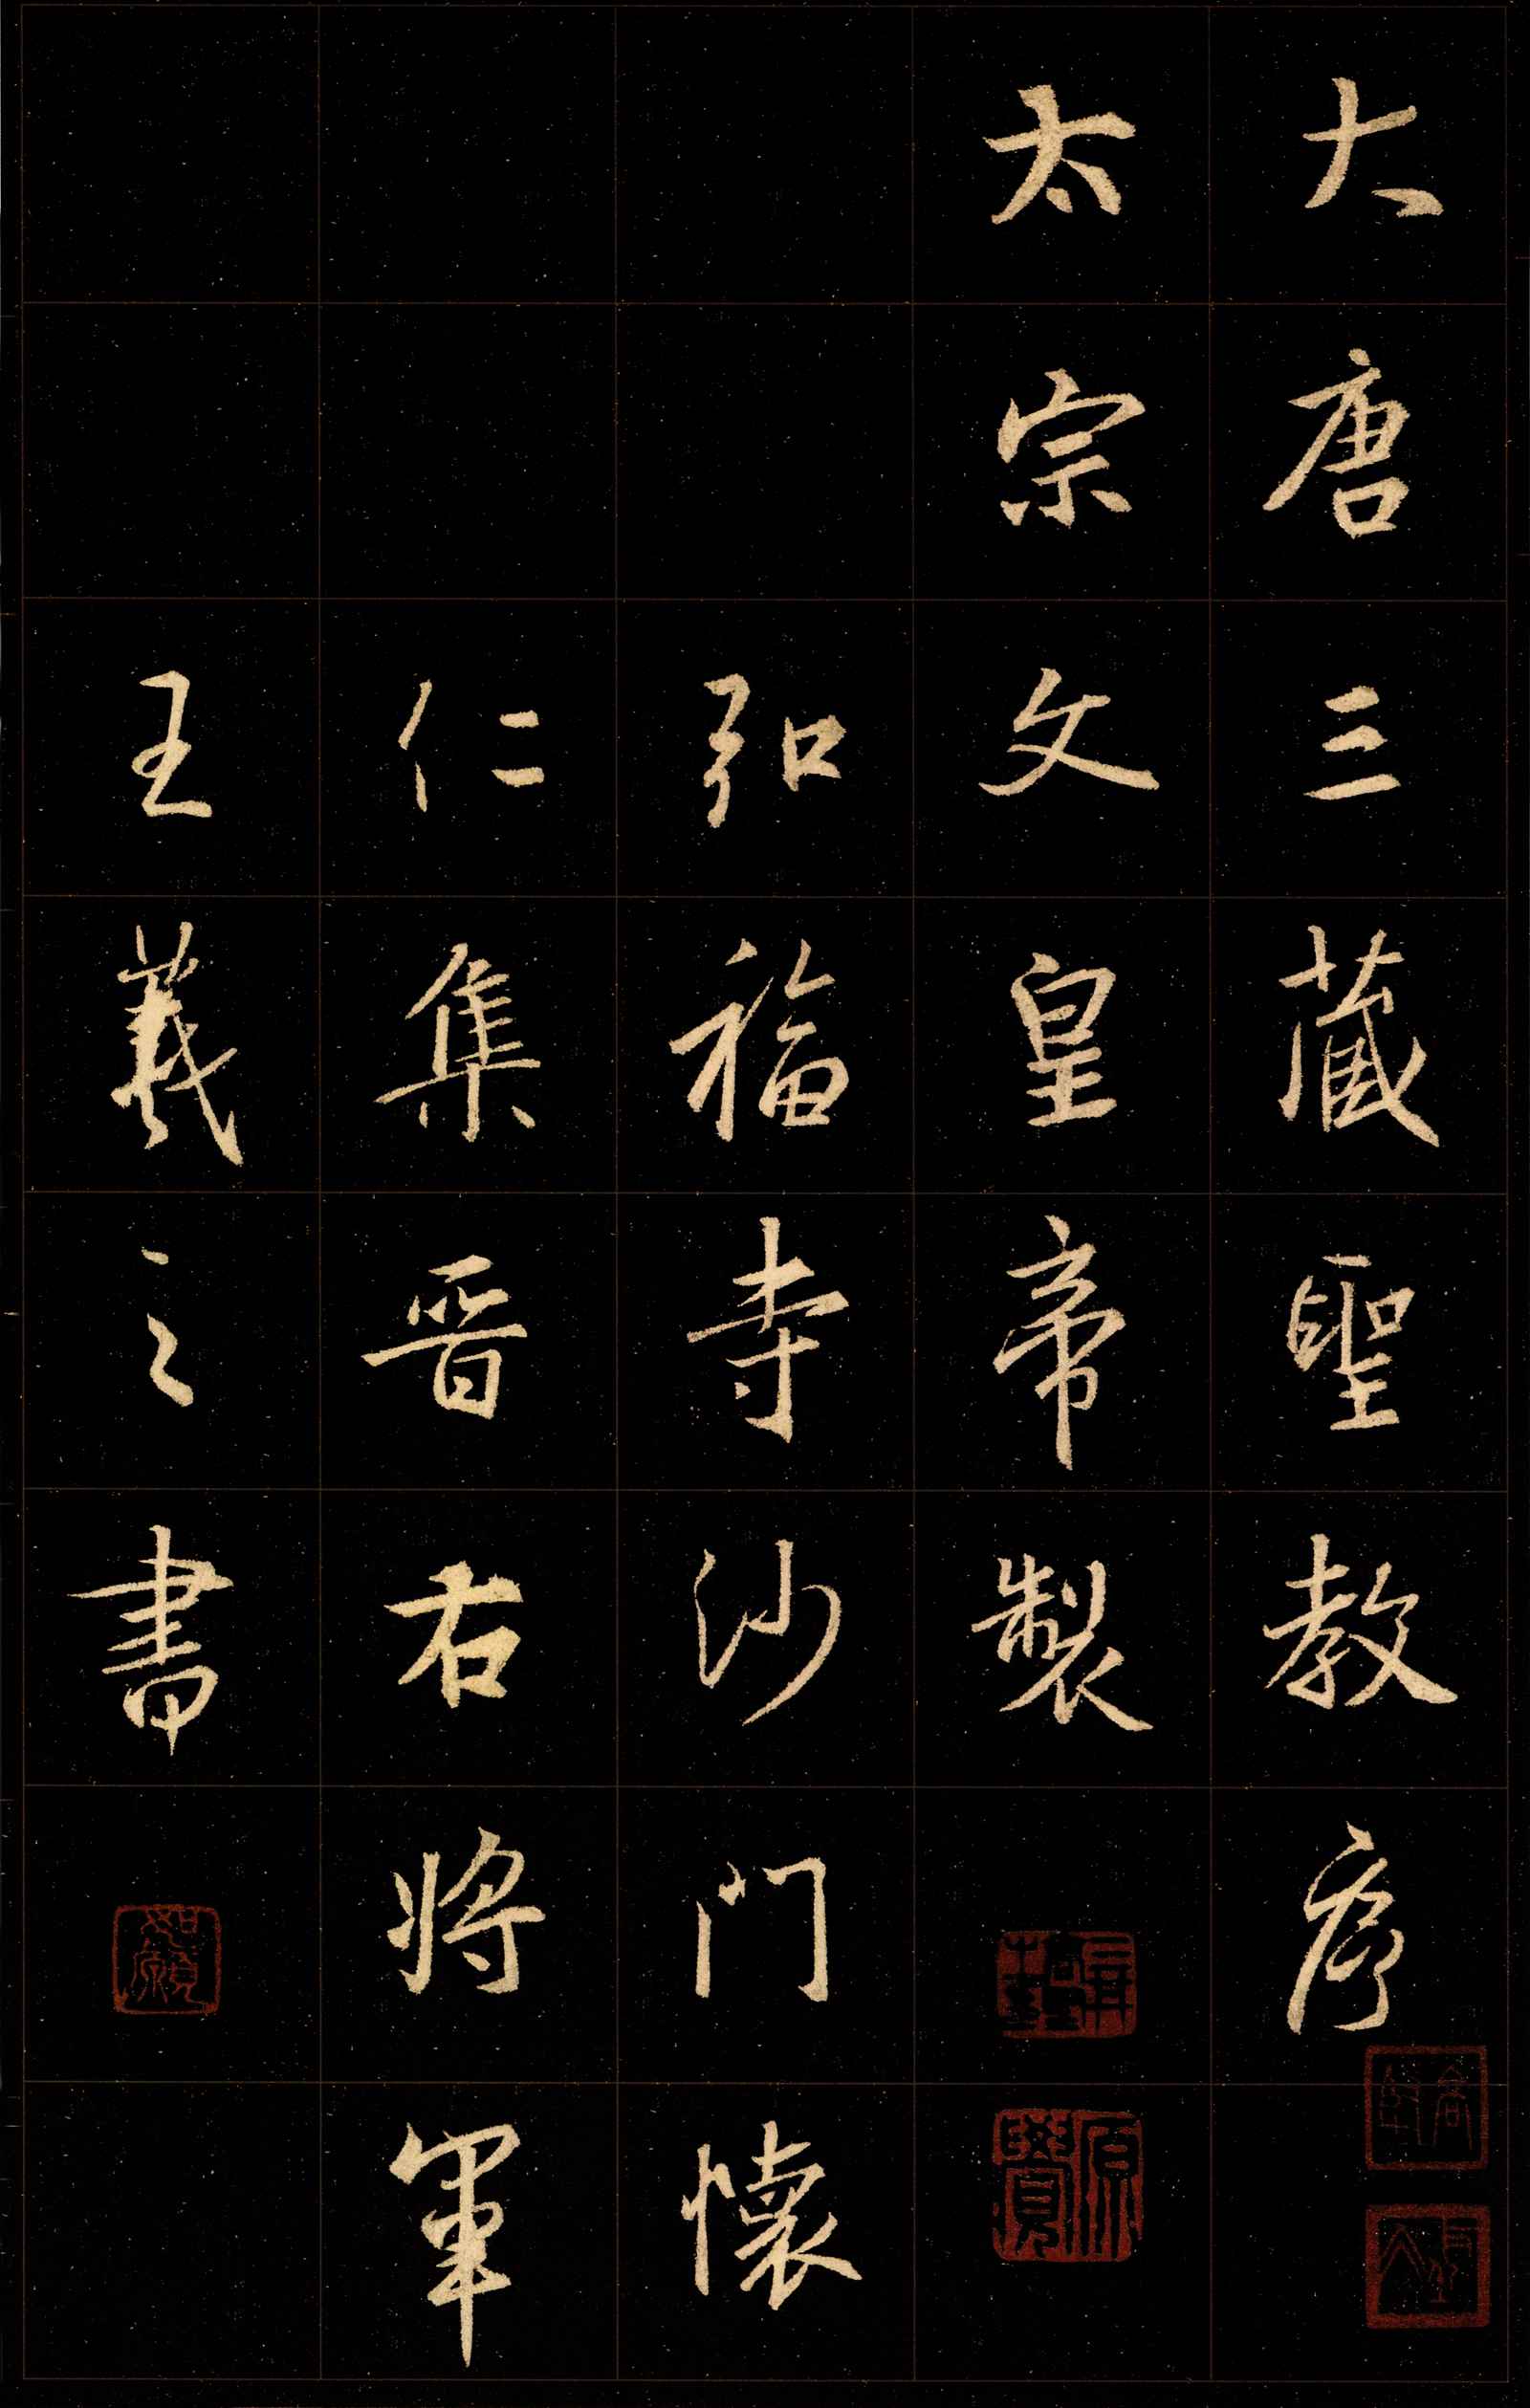 大唐三藏聖教序
太宗文皇帝製
弘福寺沙門懷
仁集晉右將軍
王羲之書
如願